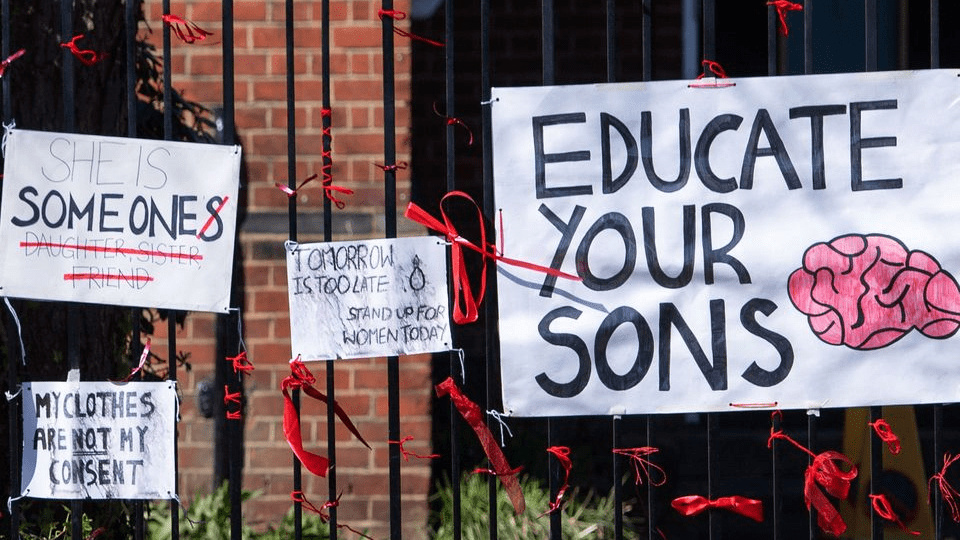 SHE IS
SOMEONES
DAUGHTER, SISTER,
FRIEND
TOMORROW
IS TOO LATE
STAND UP FOR
WOMEN TODAY
MY CLOTHES
ARE NOT MY
CONSENT
EDUCATE
YOUR
SONS